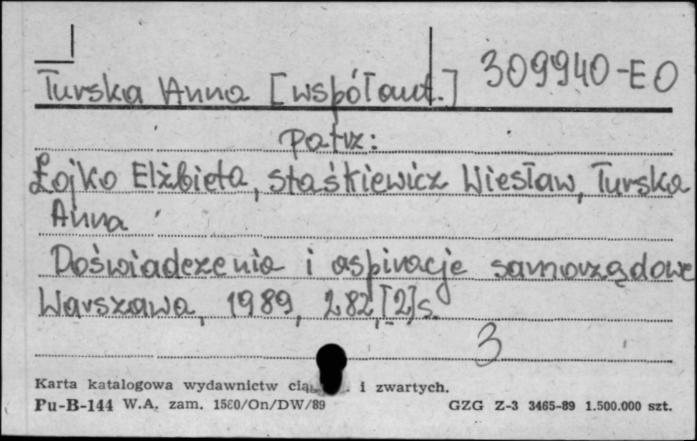 Turska Anna [współaut.] 309940-EO
patrz:
Łojko Elżbieta, Staśkiewicz Wiesław, Turska
Anna
Doświadczenia i aspiracje samorządowe
Warszawa, 1989, 282,[2]s.
3
Karta katalogowa wydawnictw i zwartych.
Pu-B-144 W.A. zam. 1560/On/DW/89 GZG Z-3 3465-89 1.500.000 szt.